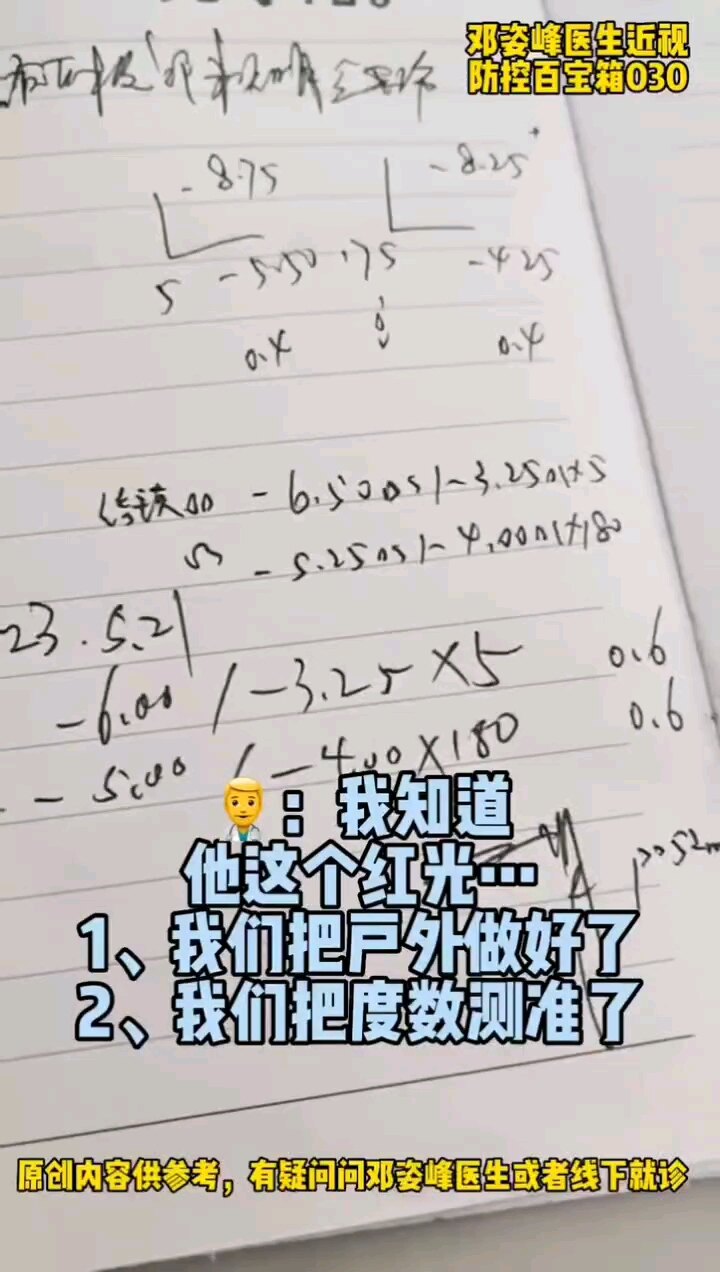 邓姿峰医生近视
防控百宝箱030
-8.75
-8.25
5 -5.50 175 -4.25
0.4 0.4
-6.50DS/-3.25DC×5
-5.25DS/-4.00DC×180
23.5.21
-6.00/-3.25×5 0.6
-5.00/-4.00×180 0.6
：我知道
他这个红光…
1、我们把户外做好了
2、我们把度数测准了
原创内容供参考，有疑问问邓姿峰医生或者线下就诊